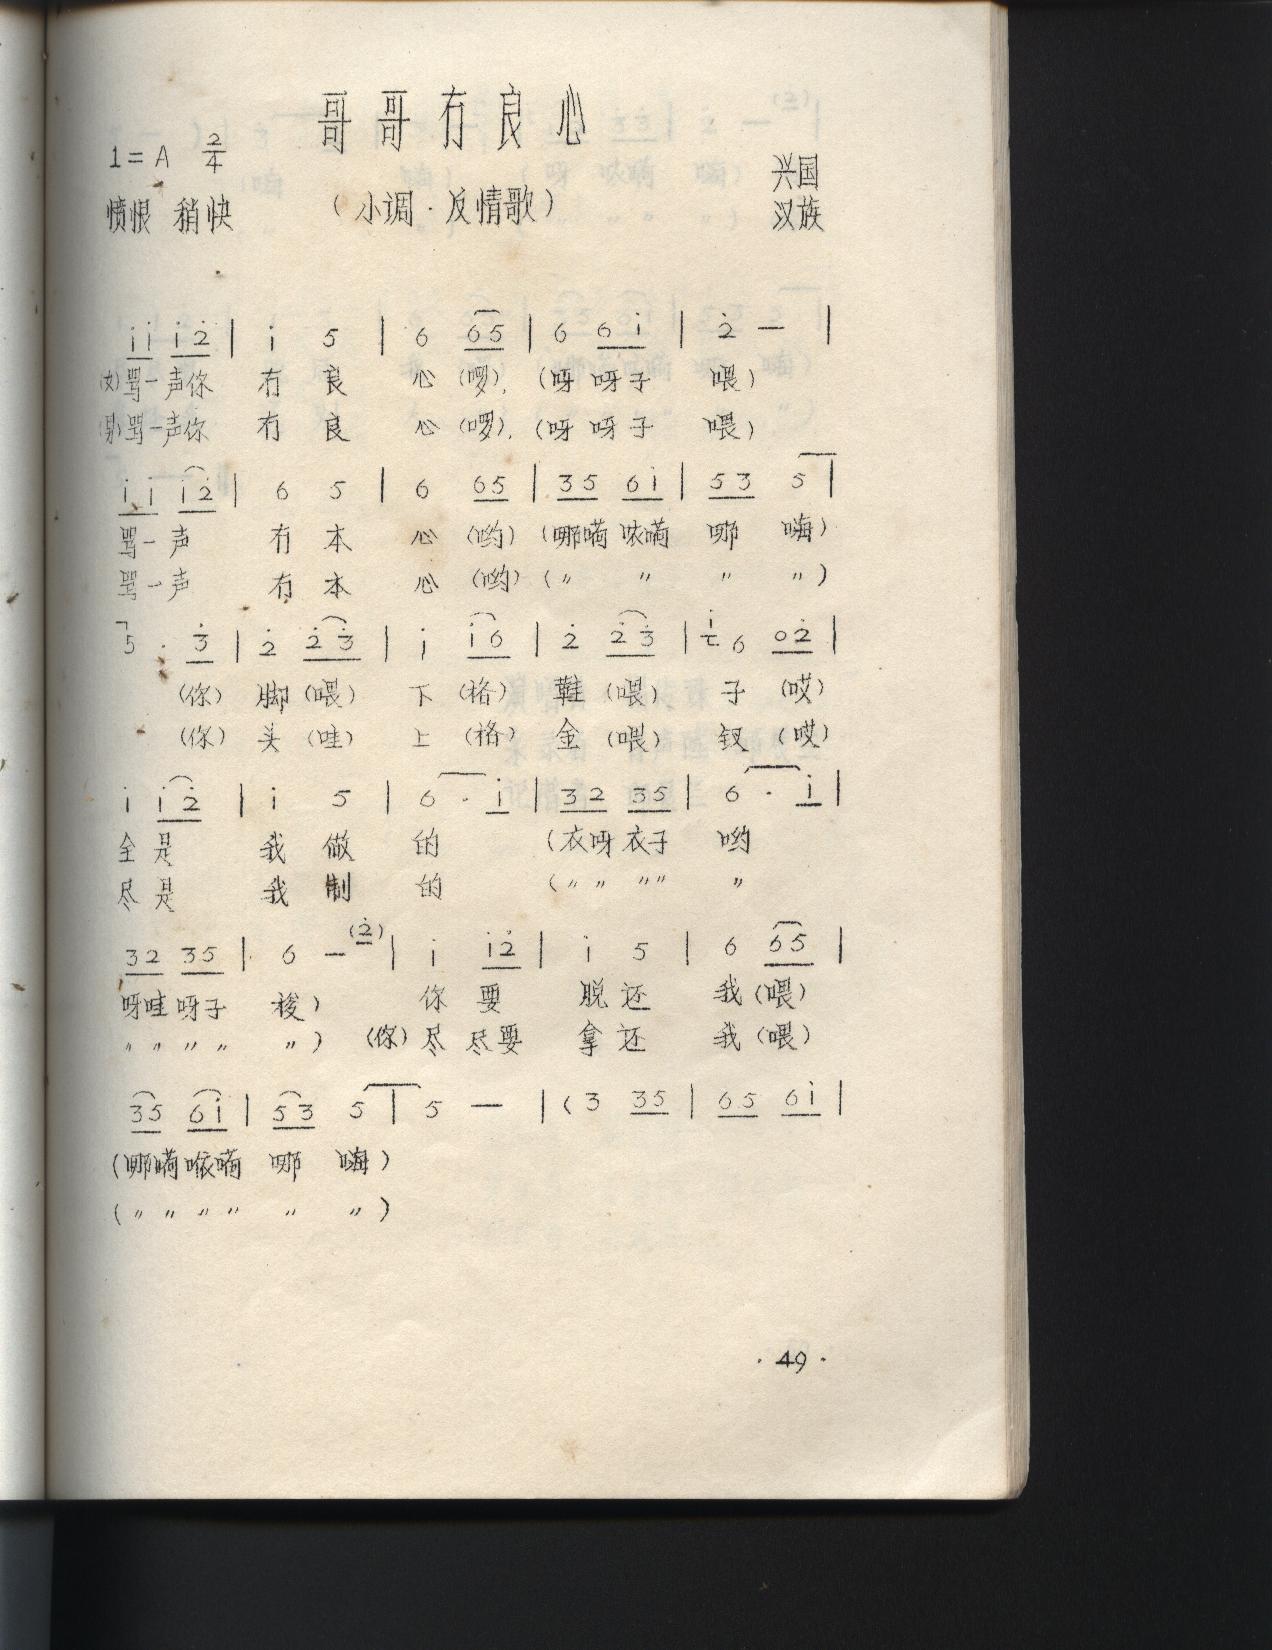 哥哥冇良心
1=A 2/4
愤恨 稍快 （小调·反情歌） 兴国
汉族
i̇ i̇ i̇ 2̇ | i̇ 5 | 6 6 5 | 6 6 i̇ | 2̇ — |
(女)骂一声你 冇 良 心 (啰), (呀 呀子 喂)
(男)骂一声你 冇 良 心 (啰), (呀 呀子 喂)
i̇ i̇ i̇ 2̇ | 6 5 | 6 6 5 | 3 5 6 i̇ | 5 3 5 |
骂一声 冇 本 心 (哟) (哪嗬咳嗬 哪 嗨)
骂一声 冇 本 心 (哟) (〃 〃 〃 〃)
5 · 3̇ | 2̇ 2̇ 3̇ | i̇ i̇ 6 | 2̇ 2̇ 3̇ | i̇ 6 0 2̇ |
(你) 脚 (喂) 下 (格) 鞋 (喂) 子 (哎)
(你) 头 (哇) 上 (格) 金 (喂) 钗 (哎)
i̇ i̇ 2̇ | i̇ 5 | 6 · i̇ | 3 2 3 5 | 6 · i̇ |
全 是 我 做 的 (衣呀衣子 哟
尽 是 我 制 的 (〃 〃 〃〃 〃
3 2 3 5 | 6 — (2̇) | i̇ i̇ 2̇ | i̇ 5 | 6 6 5 |
呀哇呀子 梭) 你 要 脱 还 我 (喂)
〃 〃 〃 〃 〃) (你) 尽 尽要 拿 还 我 (喂)
3 5 6 i̇ | 5 3 5 | 5 — | (3 3 5 | 6 5 6 i̇ |
(哪嗬咳嗬 哪 嗨)
(〃 〃 〃 〃 〃 〃)
·49·